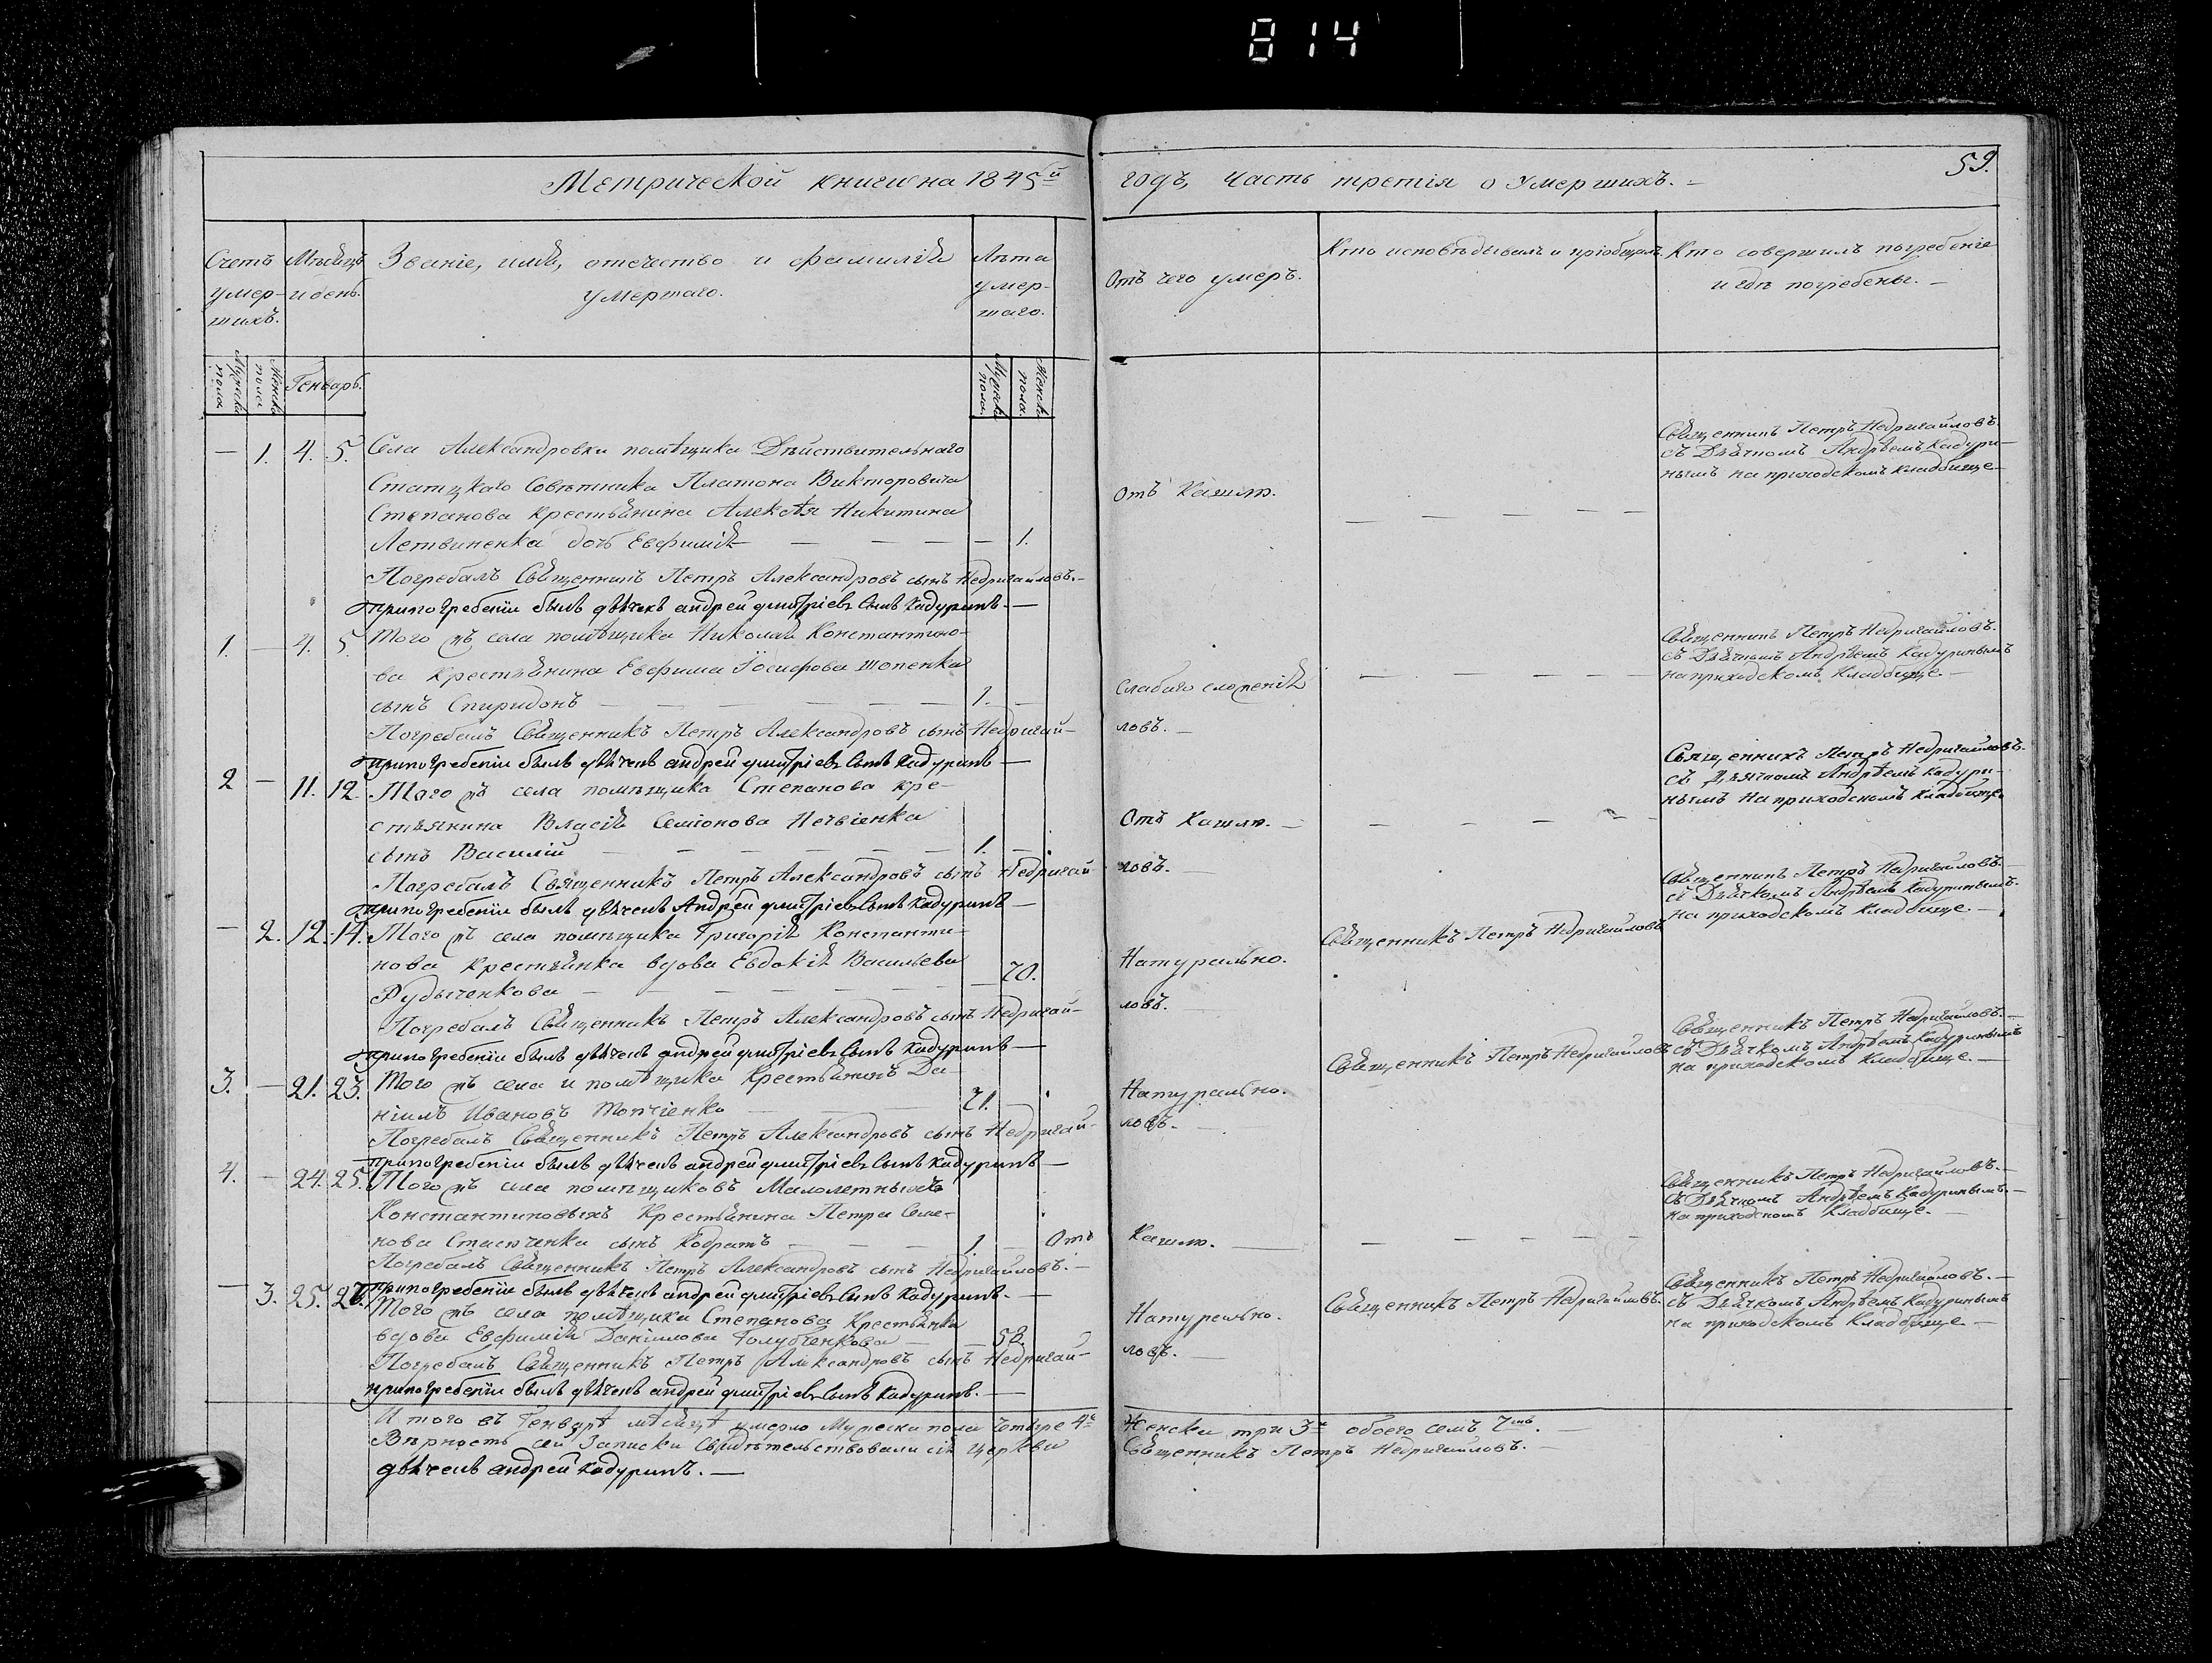 814
Метрической книги на 1845й годъ, часть третія о Умершихъ.
59.
Счетъ умер-шихъ.
Мѣсяцъ и день.
Званіе, имя, отечество и фамилія умершаго.
Лѣта умер-шаго.
Отъ чего умеръ.
Кто исповѣдывалъ и пріобщалъ
Кто совершилъ погребеніе и гдѣ погребены.
Мужеска пола
Женска пола
Генварь.
Мужеска пола
Женска пола
— 1. 4. 5. Села Александровки помѣщика Дѣйствительнаго
Статцкаго Совѣтника Платона Викторовича
Степанова крестьянина Алексѣя Никитина
Летвиненка дочь Евфимія — 1.
Отъ кашлю.
Священникъ Петръ Недригайловъ
съ Дьячкомъ Андреемъ Кадури-
нымъ на приходскомъ кладбище
Погребалъ Священникъ Петръ Александровъ сынъ Недригайловъ.
при погребеніи былъ дьячекъ андрей дмитріевъ сынъ кадуринъ.
1. — 4. 5. Того жъ села помѣщика Николая Константино-
ва крестьянина Евфима Іосифова
сынъ Спиридонъ 1. —
Слабаго сложенія
Священникъ Петръ Недригайловъ.
съ Дьячкомъ Андреемъ Кадуринымъ
на приходскомъ Кладбище.
Погребалъ Священникъ Петръ Александровъ сынъ Недригай-
ловъ.
при погребеніи былъ дьячекъ андрей дмитріевъ сынъ кадуринъ
2 — 11. 12. Того жъ села помѣщика Степанова кре-
стьянина Власія Семіонова
сынъ Василій 1. —
Отъ Кашлю.
Священникъ Петръ Недригайловъ.
съ Дьячкомъ Андреемъ Кадури-
нымъ на приходскомъ кладбище
Погребалъ Священникъ Петръ Александровъ сынъ Недригай-
ловъ.
при погребеніи былъ дьячекъ Андрей дмитріевъ сынъ кадуринъ
— 2. 12. 14. Того жъ села помѣщика Григорія Константи-
нова крестьянка вдова Евдокія Васильева
Рудыченкова — 70.
Натурально.
Священникъ Петръ Недригайловъ
Священникъ Петръ Недригайловъ.
съ Дьячкомъ Андреемъ Кадуринымъ.
на приходскомъ кладбище.
Погребалъ Священникъ Петръ Александровъ сынъ Недригай-
ловъ.
при погребеніи былъ дьячекъ андрей дмитріевъ сынъ кадуринъ
3. — 21. 23. Того жъ села и помѣщика Крестьянинъ Да-
ніилъ Ивановъ Топчіенко 71. —
Натурально.
Священникъ Петръ Недригайловъ
Священникъ Петръ Недригайловъ.
съ Дьячкомъ Андреемъ Кадуринымъ
на приходскомъ Кладбище.
Погребалъ Священникъ Петръ Александровъ сынъ Недригай-
ловъ.
при погребеніи былъ дьячекъ андрей дмитріевъ сынъ кадуринъ
4. — 24. 25. Того жъ села помѣщиковъ Малолетныхъ
Константиновыхъ Крестьянина Петра Семе-
нова сынъ Кодратъ 1. —
Отъ Кашлю.
Священникъ Петръ Недригайловъ.
съ Дьячкомъ Андреемъ Кадуринымъ.
на приходскомъ Кладбище.
Погребалъ Священникъ Петръ Александровъ сынъ Недригайловъ.
при погребеніи былъ дьячекъ андрей дмитріевъ сынъ кадуринъ.
— 3. 25. Того жъ села помѣщика Степанова Крестьянка
вдова Евфимія Даніилова Голубченкова —
Натурально.
Священникъ Петръ Недригайловъ.
Священникъ Петръ Недригайловъ.
съ Дьячкомъ Андреемъ Кадуринымъ
на приходскомъ кладбище.
Погребалъ Священникъ Петръ Александровъ сынъ Недригай-
ловъ.
при погребеніи былъ дьячекъ андрей дмитріевъ сынъ кадуринъ.
И того въ Генварѣ мѣсяцѣ умерло Мужеска пола четыре 4е Женска три 3и обоего семъ 7мъ.
Вѣрность сей Записки Свидѣтельствовали сія церкви Священникъ Петръ Недригайловъ.
дьячекъ андрей кадуринъ.